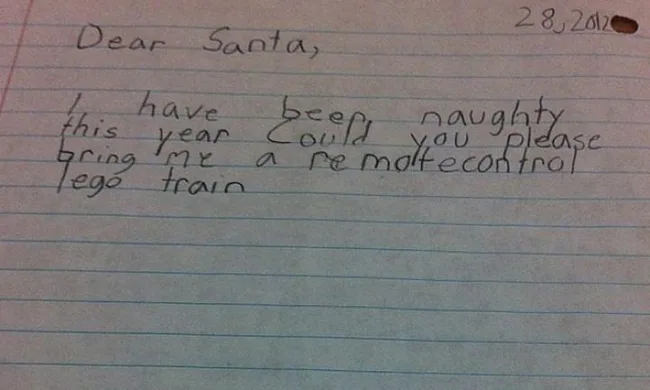 28, 2012
Dear Santa,
I have been naughty
this year Could you please
bring me a remotecontrol
lego train